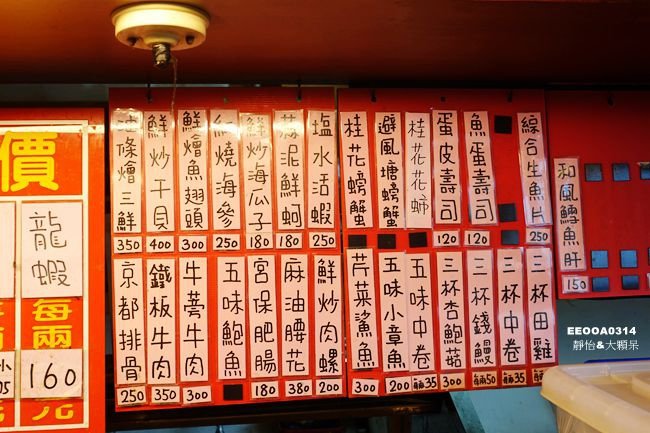 價
龍蝦
每兩
160
元
油條燴三鮮 350
鮮炒干貝 400
鮮燴魚翅頭 300
紅燒海參 250
鮮炒海瓜子 180
蒜泥鮮蚵 180
鹽水活蝦 250
桂花螃蟹
避風塘螃蟹
桂花花蟳
蛋皮壽司 120
魚蛋壽司 120
綜合生魚片 250
和風鱈魚肝 150
京都排骨 250
鐵板牛肉 350
牛蒡牛肉 300
五味鮑魚
宮保肥腸 180
麻油腰花 380
鮮炒肉螺 200
芹菜鯊魚 300
五味小章魚 200
五味中卷 每兩35
三杯杏鮑菇 300
三杯錢鰻 每兩50
三杯中卷 每兩35
三杯田雞
EEOOA0314
靜怡&大顆呆